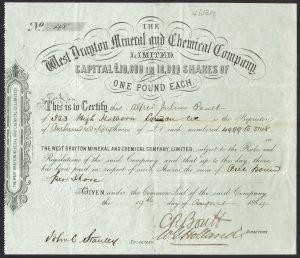 No 48
THE
West Drayton Mineral and Chemical Company,
LIMITED.
CAPITAL £10,000 IN 10,000 SHARES OF
ONE POUND EACH.
This is to Certify that Alfred Julius
of 323 High Holborn London WC is the Proprietor
Shares of £1 each numbered 4499 to
THE WEST DRAYTON MINERAL AND CHEMICAL COMPANY, LIMITED, subject to the Rules and
Regulations of the said Company and that up to this day there
has been paid in respect of such Shares the sum of One Pound
per Share
GIVEN under the Common Seal of the said Company
the 19th day of August 1864
John C Stanley SECRETARY
DIRECTORS
W Holland
THE WEST DRAYTON MINERAL AND CHEMICAL COMPANY LIMITED